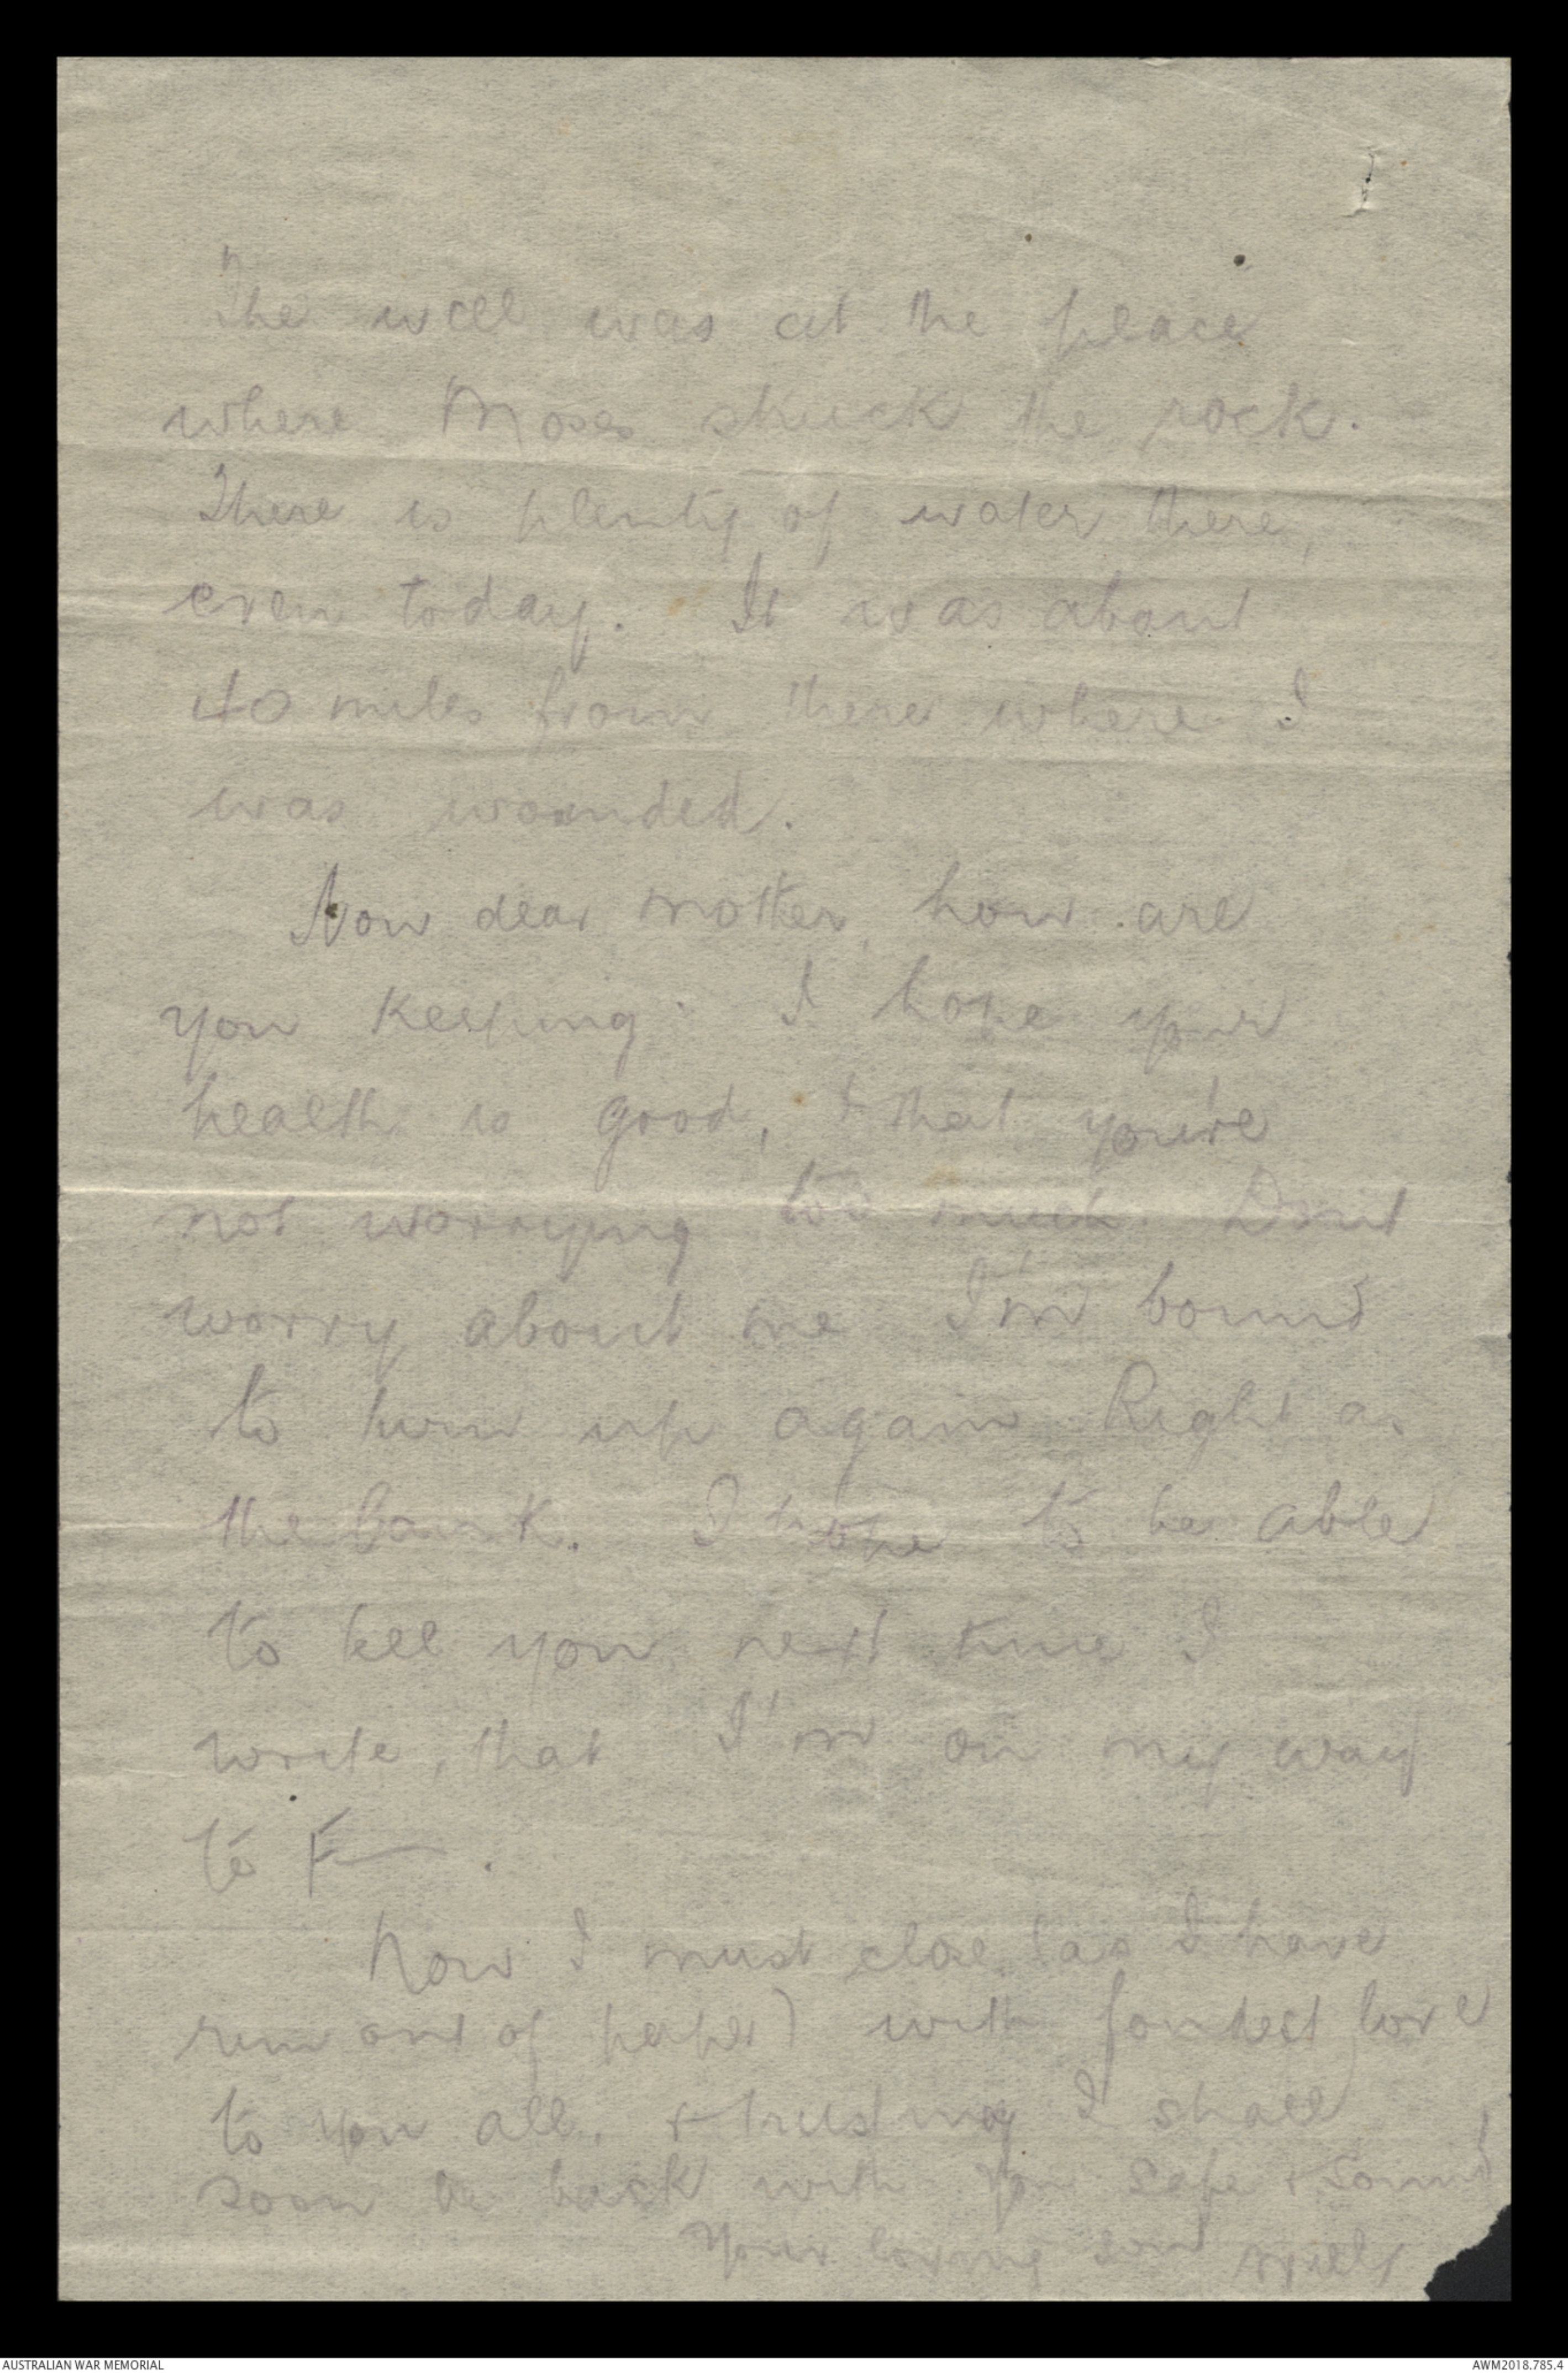 The well was at the place
where Moses struck the rock.
There is plenty of water there,
even today. It was about
40 miles from there where I
was wounded.
Now dear mother, how are
you keeping. I hope your
health is good, & that you're
not worrying too much. Dont
worry about me I'm bound
to turn up again Right as
the bank. I hope to be able
to tell you next time I
write, that I'm on my way
to F—.
Now I must close (as I have
run out of paper) with fondest love
to you all, & trusting I shall
soon be back with you safe & sound
Your loving son
AUSTRALIAN WAR MEMORIAL
AWM2018.785.4